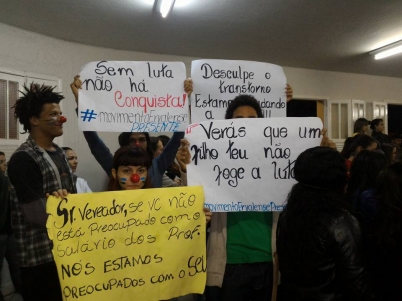 Sem luta
não há
Conquista!
#movimento Enialense
PRESENTE
Desculpe o
transtorno
Estamos
Verás que um
filho teu não
foge a luta
Sr. Vereador, se vc não
está Preocupado com o
salário dos Prof.
NÓS ESTAMOS
PREOCUPADOS COM O SEU